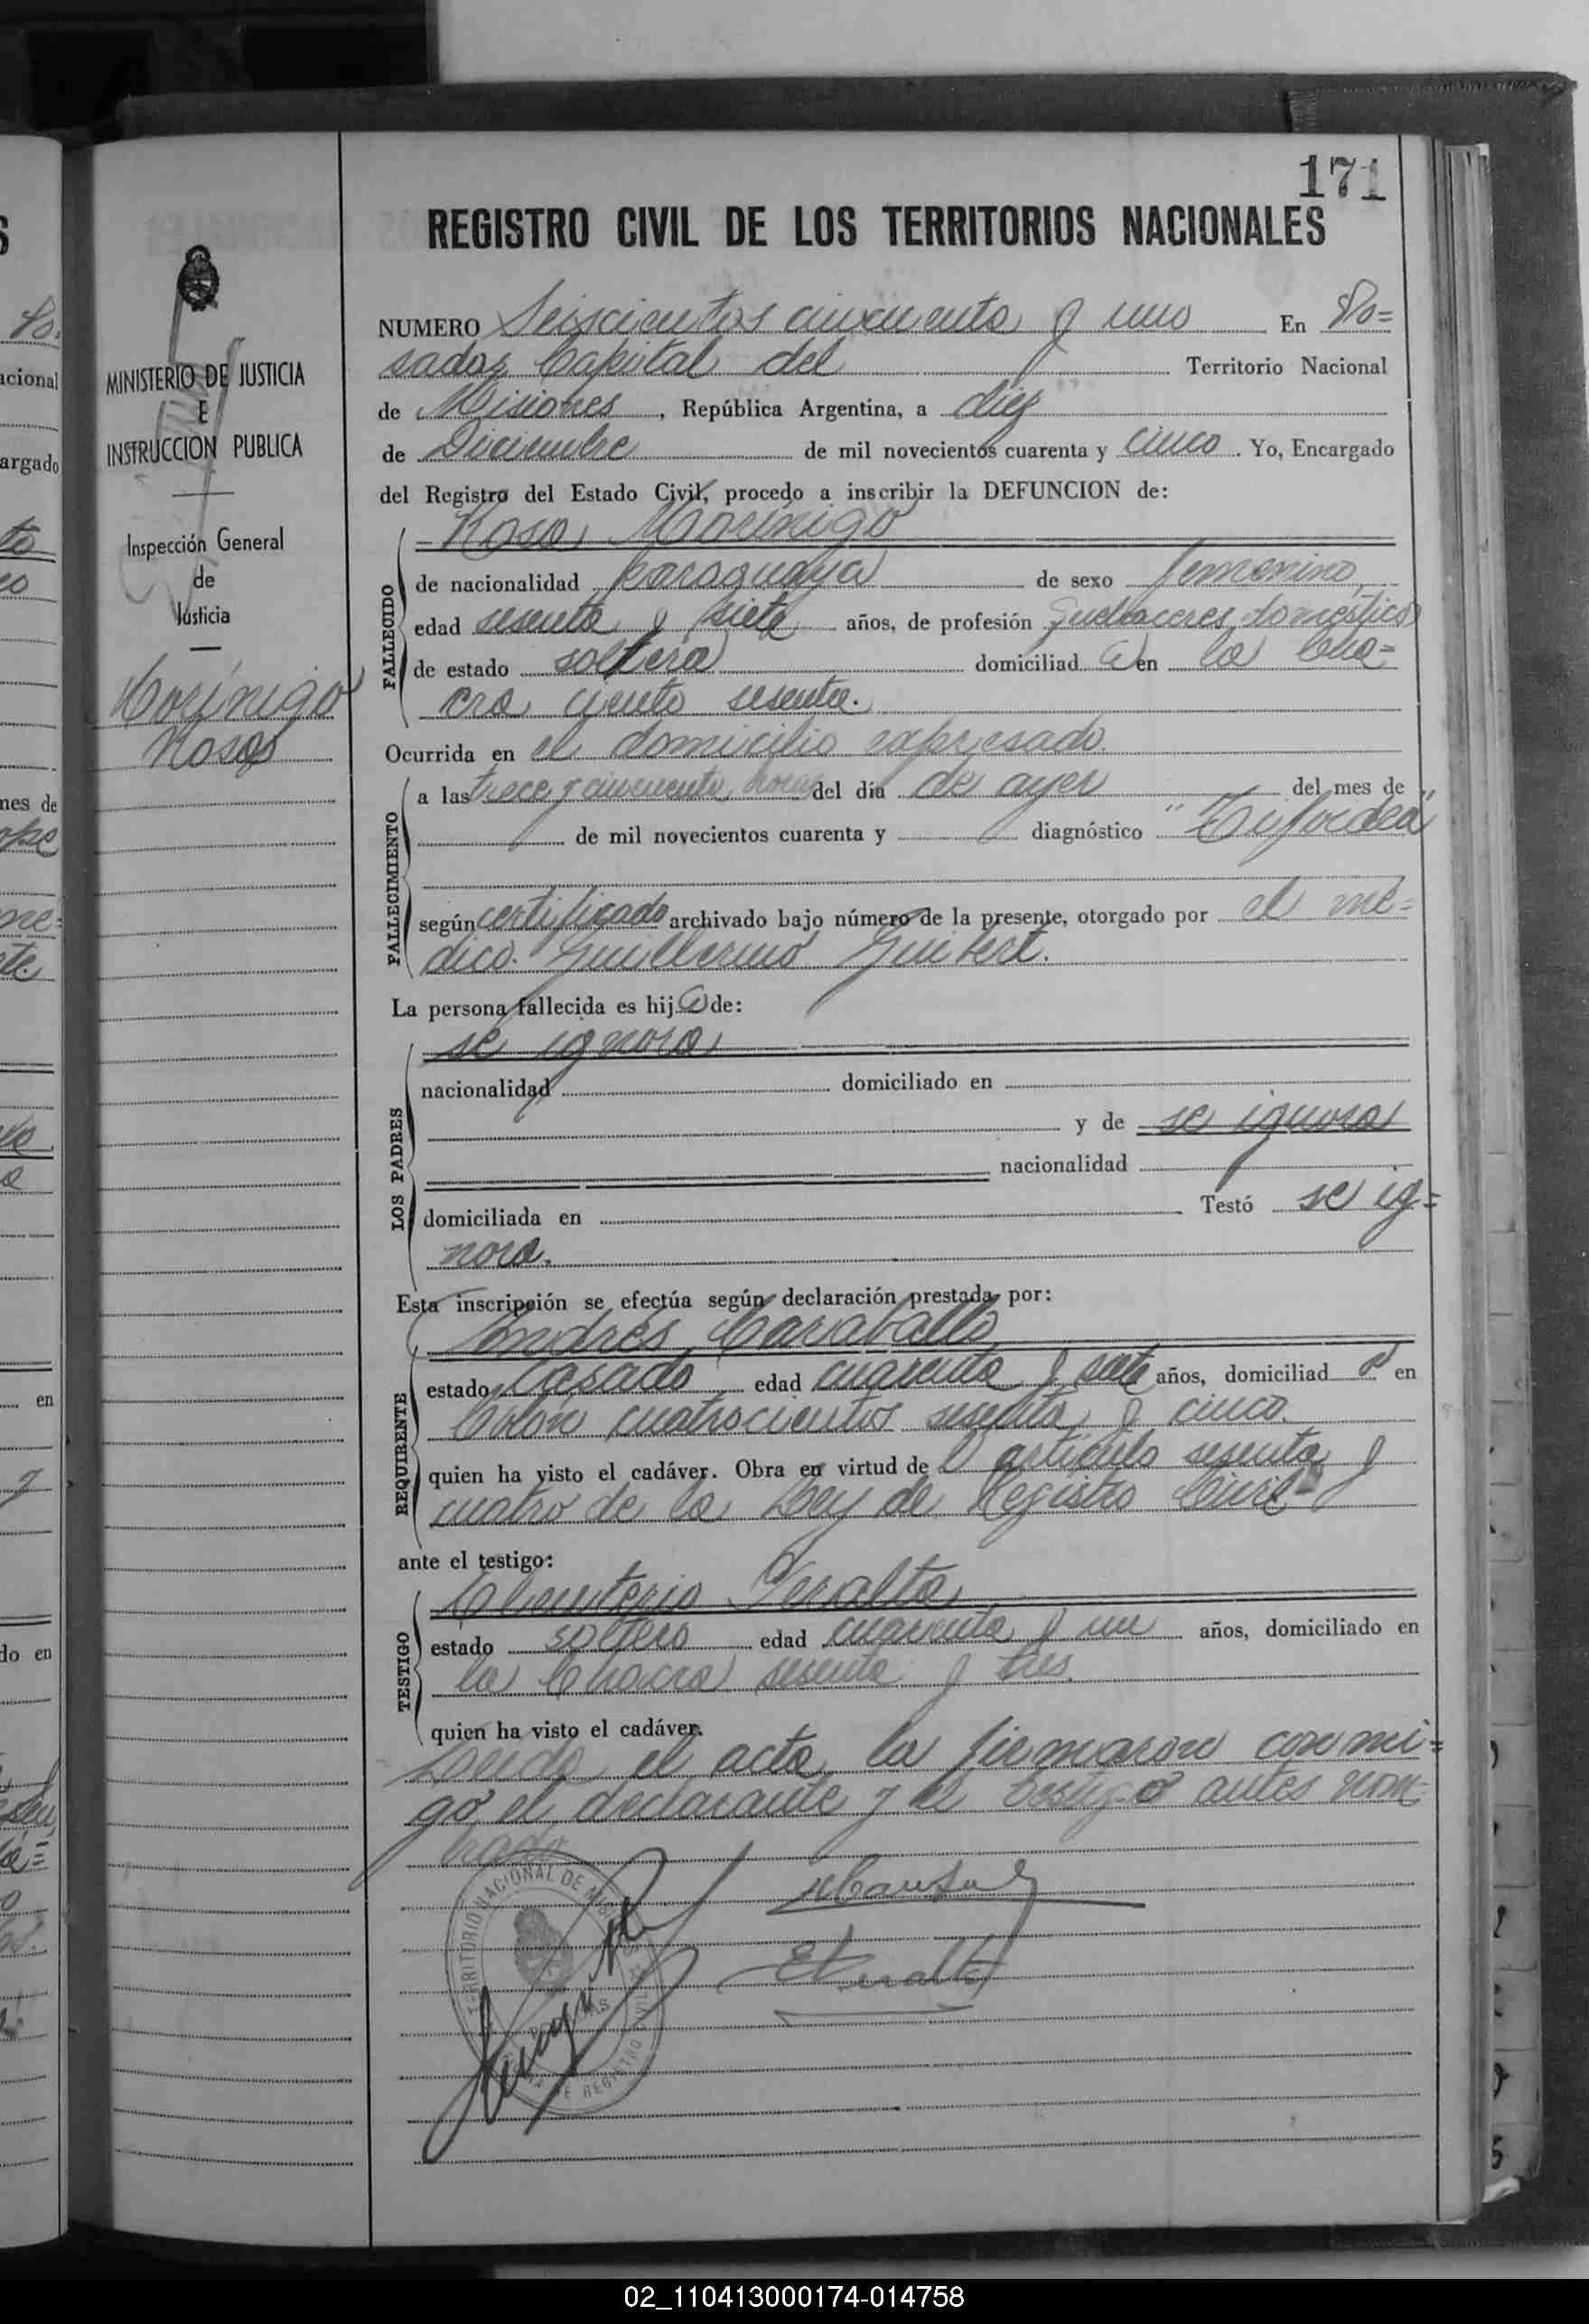 171
REGISTRO CIVIL DE LOS TERRITORIOS NACIONALES
MINISTERIO DE JUSTICIA
E
INSTRUCCION PUBLICA
Inspección General
de
Justicia
Moriñigo
Rosa
NUMERO Seiscientos cincuenta y uno En Po=
sadas Capital del Territorio Nacional
de Misiones, República Argentina, a diez
de Diciembre de mil novecientos cuarenta y cinco. Yo, Encargado
del Registro del Estado Civil, procedo a inscribir la DEFUNCION de:
Rosa Moriñigo
FALLECIDO
de nacionalidad paraguaya de sexo femenino,
edad sesenta y siete años, de profesión quehaceres domésticos
de estado soltera domiciliad a en la Cha=
cra ciento sesenta.
Ocurrida en el domicilio expresado.
FALLECIMIENTO
a las trece y cincuenta horas del día de ayer del mes de
de mil novecientos cuarenta y diagnóstico "Tifoidea"
según certificado archivado bajo número de la presente, otorgado por el mé=
dico Guillermo Guibert.
La persona fallecida es hij a de:
se ignora
LOS PADRES
nacionalidad domiciliado en
y de se ignora
nacionalidad
domiciliada en Testó se ig=
nora.
Esta inscripción se efectúa según declaración prestada por:
Andrés Caraballo
REQUIRENTE
estado Casado edad cuarenta y siete años, domiciliad o en
Colón cuatrocientos sesenta y cinco.
quien ha visto el cadáver. Obra en virtud de l artículo sesenta y
cuatro de la Ley de Registro Civil
ante el testigo:
Eleuterio Peralta
TESTIGO
estado soltero edad cuarenta y un años, domiciliado en
la Chacra sesenta y tres.
quien ha visto el cadáver.
Leida el acta, la firmaron conmi=
go el declarante y el testigo antes nom=
brado
TERRITORIO NACIONAL DE
POSADAS
DE REGISTRO CIVIL
EPeralta
nacional
argado
mes de
en
do en
02_110413000174-014758